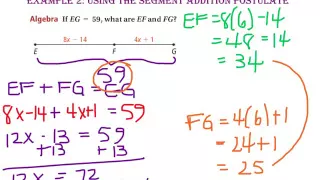 EXAMPLE 2: USING THE SEGMENT ADDITION POSTULATE
Algebra If EG = 59, what are EF and FG?
8x − 14 4x + 1
E F G
59
EF + FG = EG
8x-14 + 4x+1 = 59
12x - 13 = 59
+13 +13
12x = 72
EF=8(6)-14
=48-14
= 34
FG = 4(6)+1
- 24+1
= 25